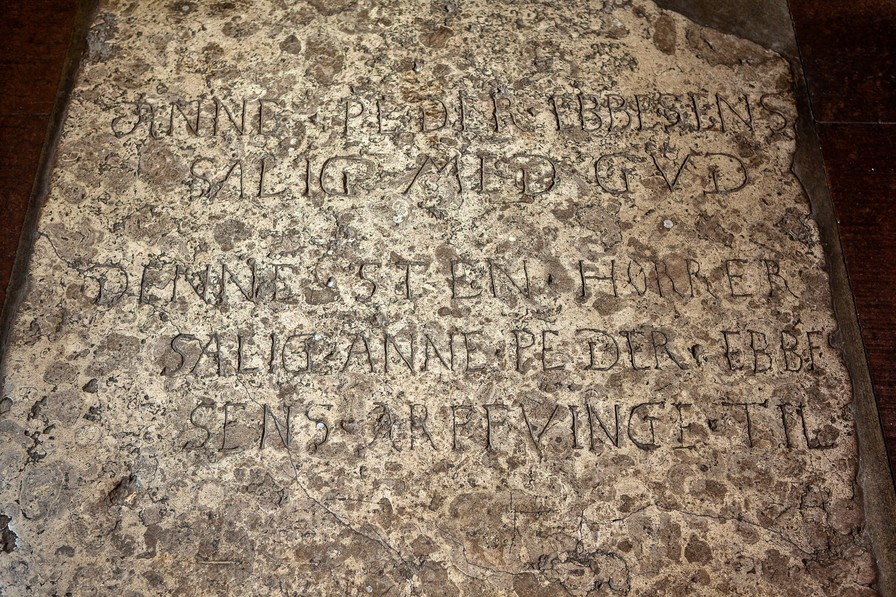 ANNE · PEDER · EBBESENS
SALIG MED GVD
DENNE STEN · HORRER
SALIG ANNE PEDER · EBBE
SENS · ARFFVINGE · TIL